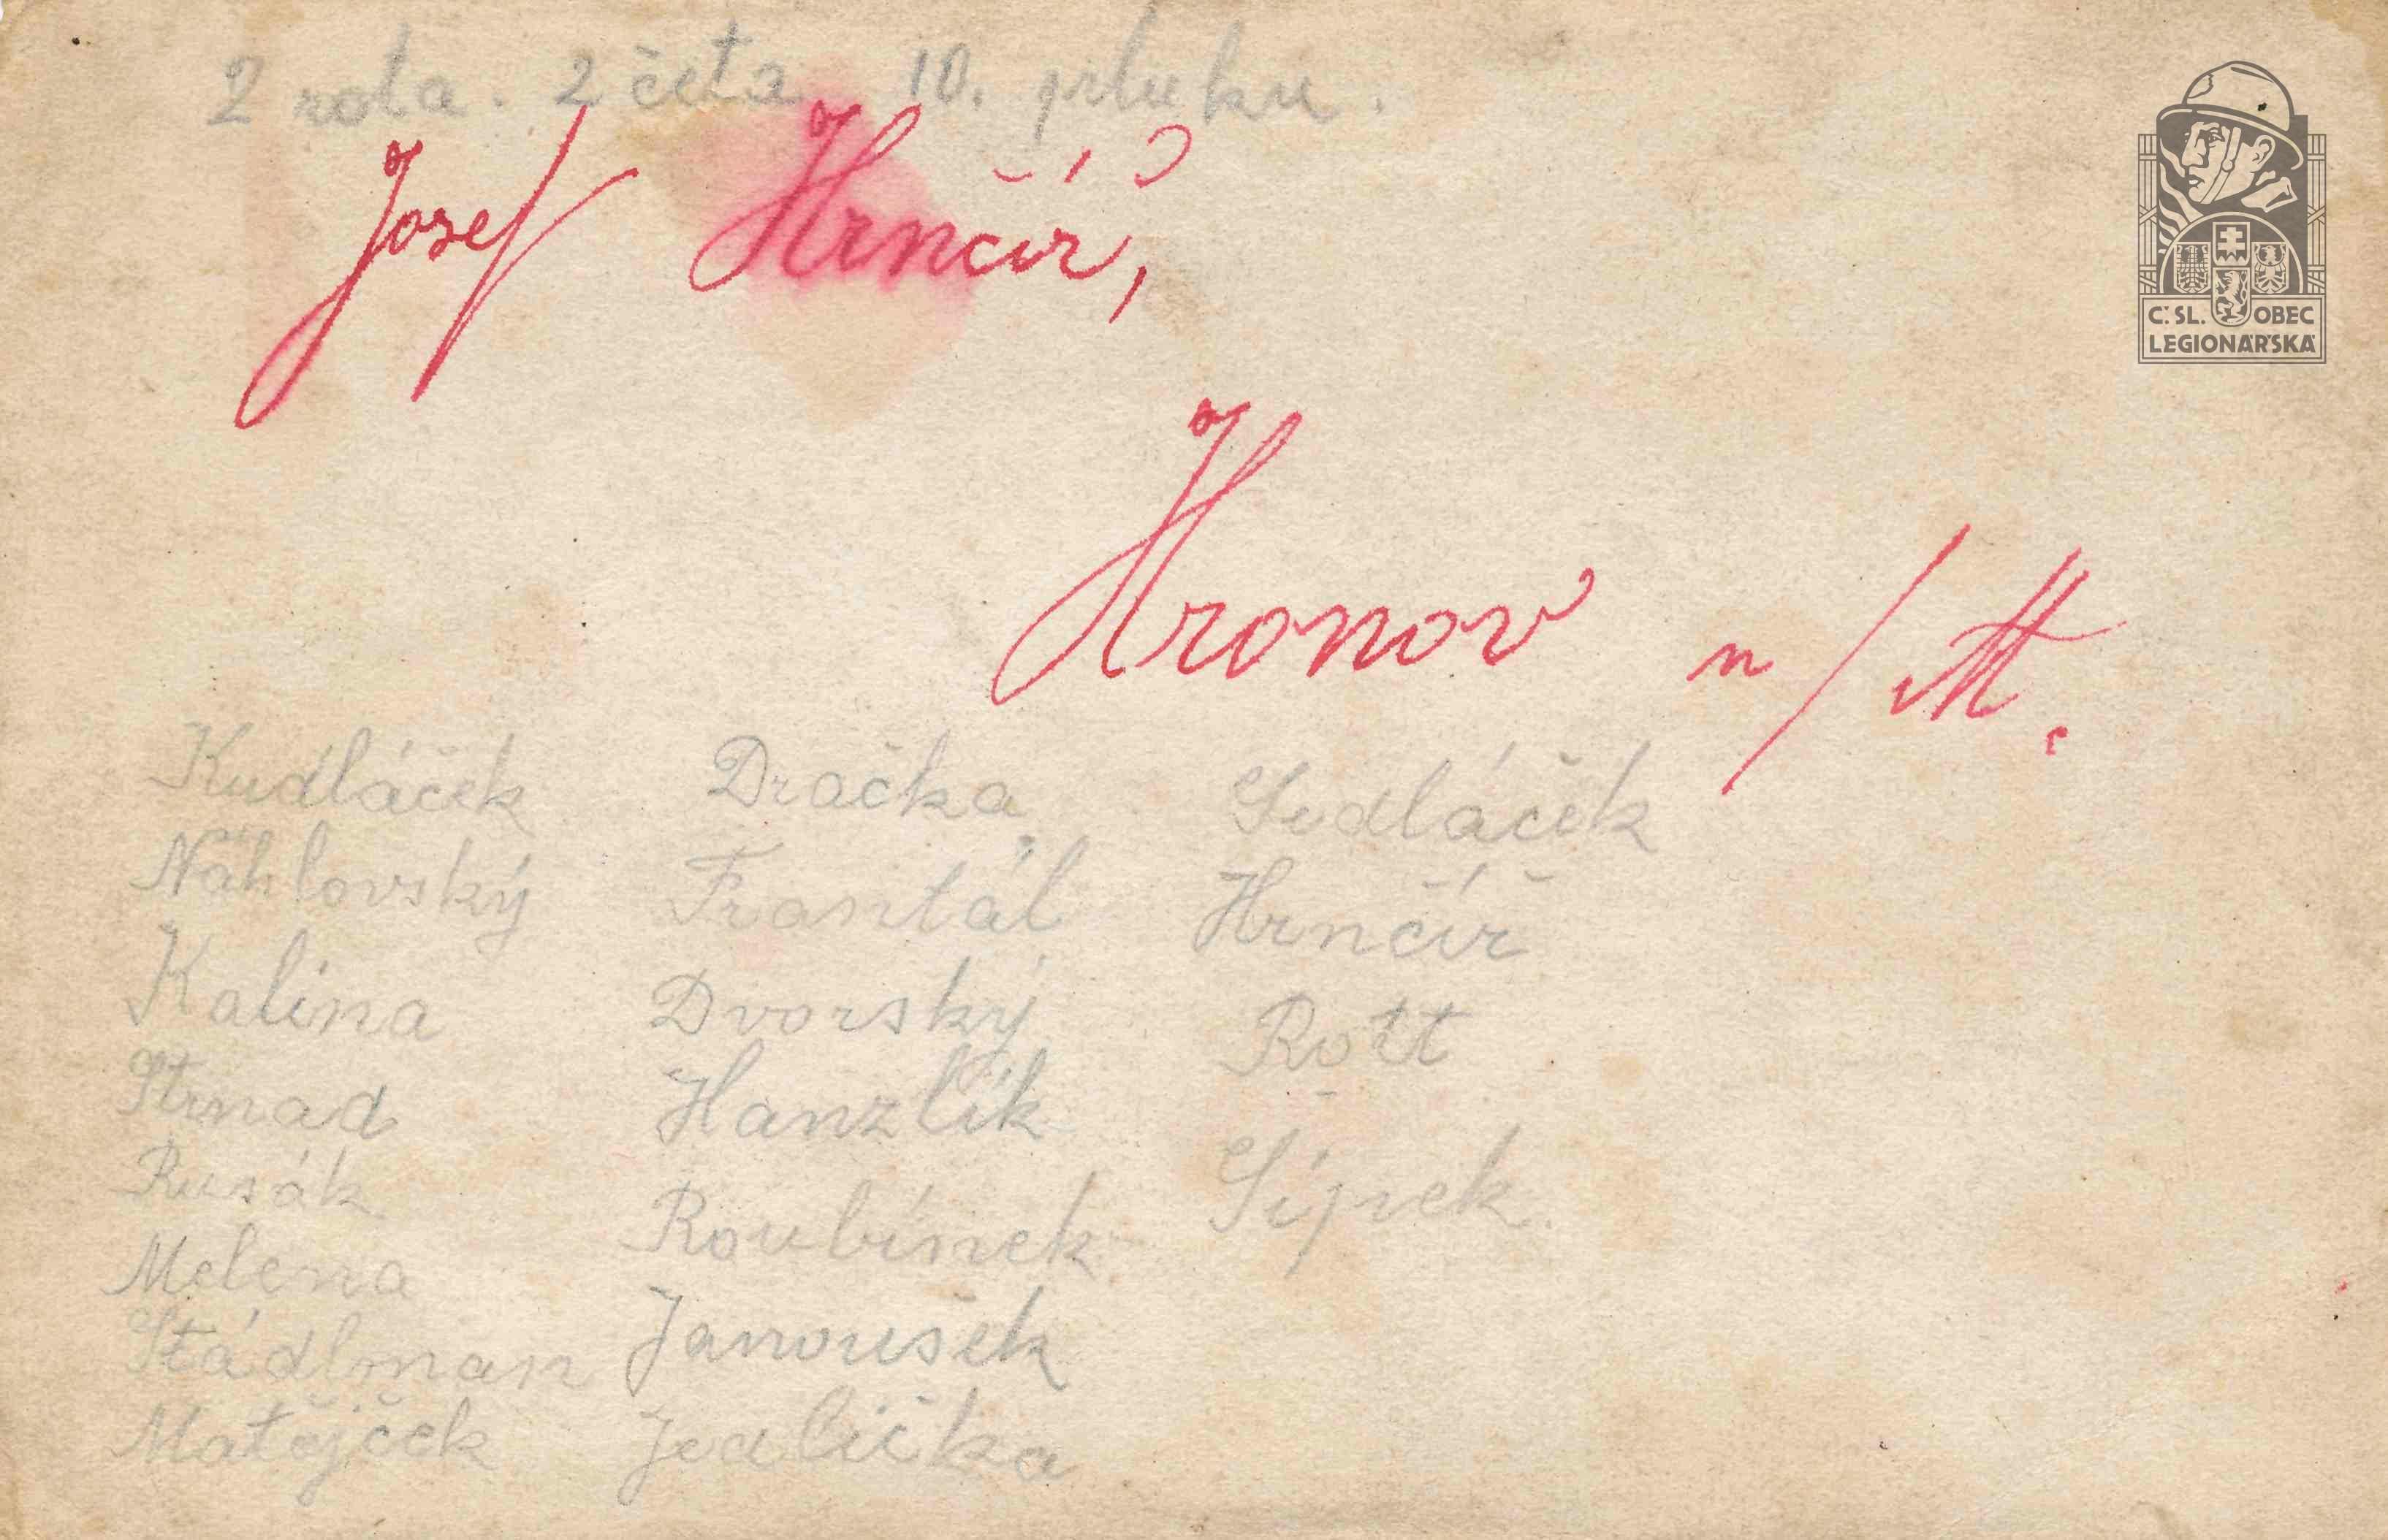 2 rota. 2 četa 10. pluku.
Josef Hrnčíř,
Hronov n/M.
Č. SL. OBEC
LEGIONÁŘSKÁ
Kudláček
Náhlovský
Kalina
Strnad
Rusák
Melena
Štádlman
Matějček
Dračka
Frantál
Dvorský
Hanzlík
Roubínek
Janoušek
Jedlička
Sedláček
Hrnčíř
Rott
Šípek.